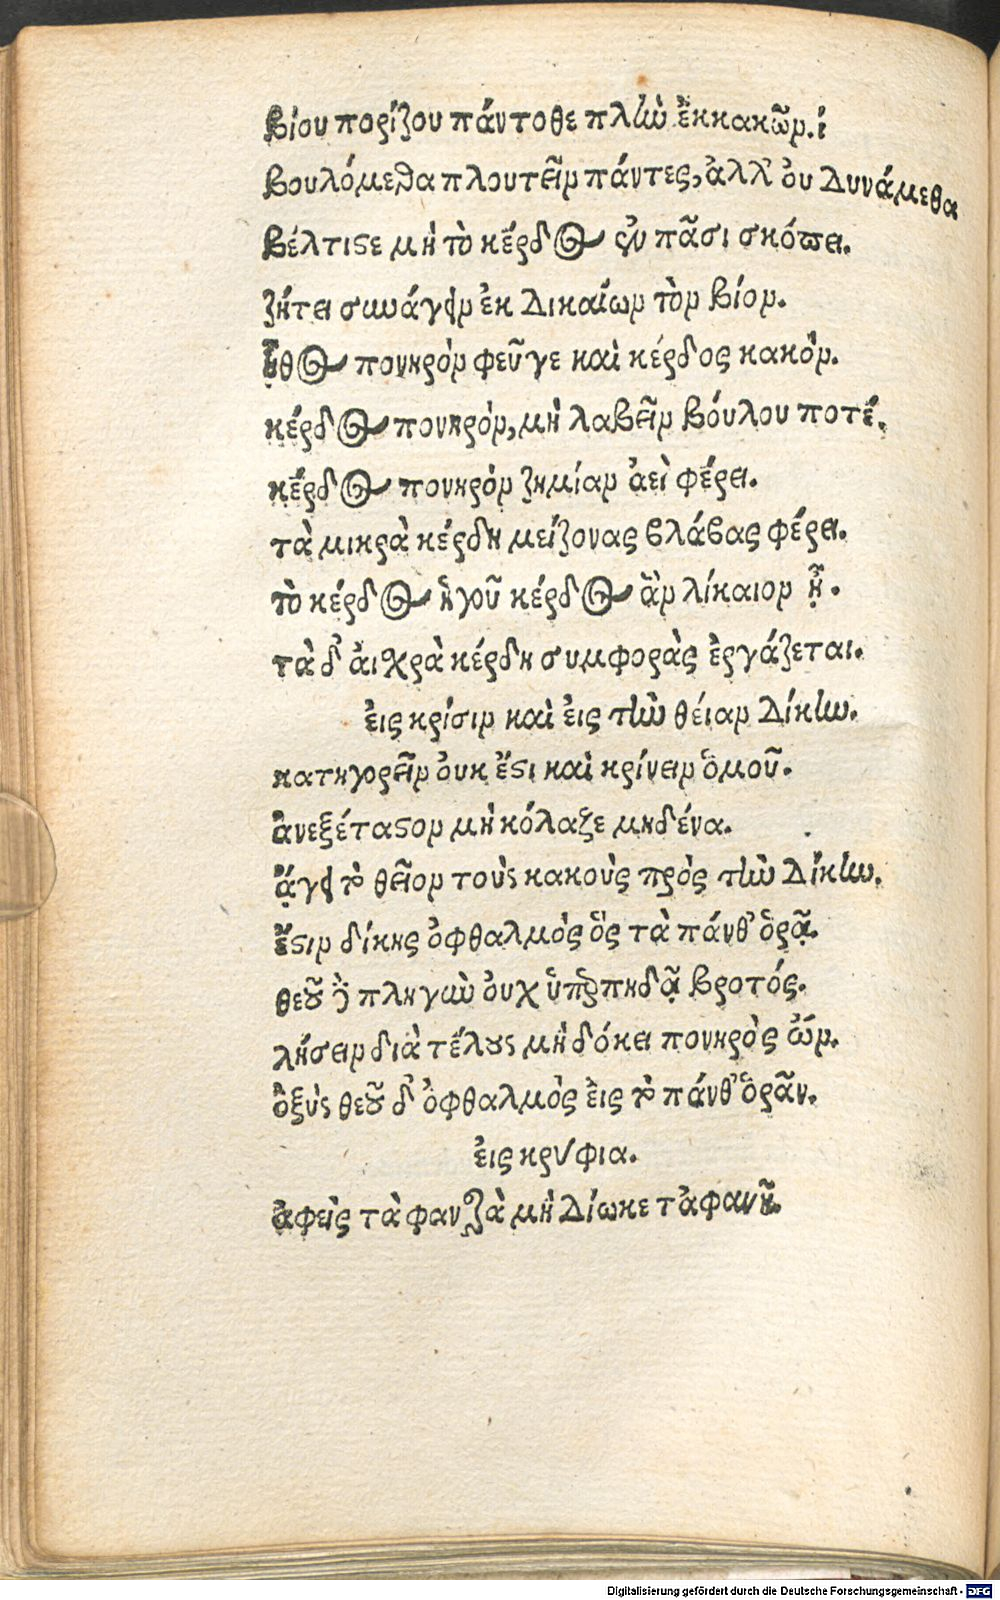 βίου πορίζου πάντοθε πλὴν ἐκκακῶν.ί
βουλόμεθα πλουτεῖν πάντες, ἀλλ' ὀυ δυνάμεθα
βέλτιϛε μὴ τὸ κέρδος ἐν πᾶσι σκόπει.
ζήτει συνάγειν ἐκ δικαίων τὸν βίον.
ἦθος πονηρὸν φεῦγε καὶ κέρδος κακόν.
κέρδος πονηρὸν, μὴ λαβεῖν βόυλου ποτέ.
κέρδος πονηρὸν ζημίαν ἀεὶ φέρει.
τὰ μικρὰ κέρδη μείζονας βλάβας φέρει.
τὸ κέρδος ἡγοῦ κέρδος ἂν δίκαιον ᾖ.
τὰ δ' ἀιχρὰ κέρδη συμφορὰς ἐργάζεται.
ἐις κρίσιν καὶ ἐις τὴν θέιαν δίκην.
κατηγορεῖν ὀυκ ἔϛι καὶ κρίνειν ὁμοῦ.
ἀνεξέταϛον μὴ κόλαζε μηδένα.
ἄγει τὸ θεῖον τοὺς κακοὺς πρὸς τὴν δίκην.
ἔϛιν δίκης ὀφθαλμὸς ὃς τὰ πάνθ' ὁρᾷ.
θεοῦ γὰρ πληγὴν ὀυχ ὑπερπηδᾷ βροτός.
λήσειν διὰ τέλους μὴ δόκει πονηρὸς ὤν.
ὀξὺς θεοῦ δ' ὀφθαλμὸς ἐις τὸ πάνθ' ὁρᾶν.
ἐις κρύφια.
ἀφεὶς τὰ φανερὰ μὴ δίωκε τἀφανῆ.
Digitalisierung gefördert durch die Deutsche Forschungsgemeinschaft - DFG